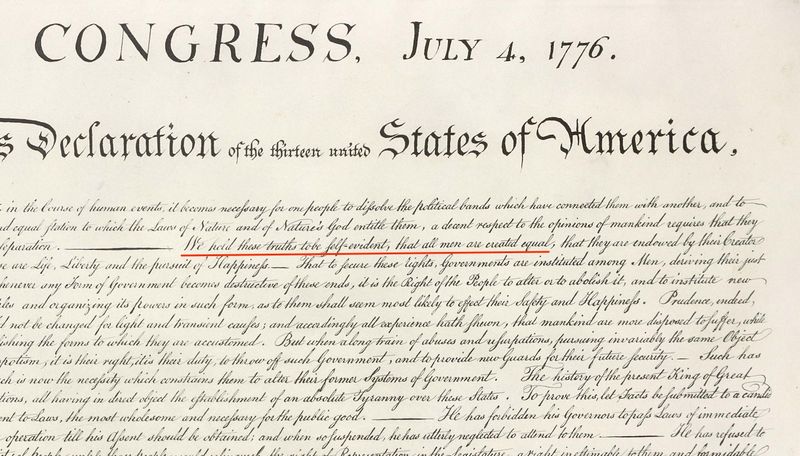 CONGRESS, JULY 4, 1776.
s Declaration of the thirteen united States of America,
in the Course of human events, it becomes necessary for one people to dissolve the political bands which have connected them with another, and to
equal station to which the Laws of Nature and of Nature's God entitle them, a decent respect to the opinions of mankind requires that they
separation. We hold these truths to be self-evident, that all men are created equal, that they are endowed by their Creator
are Life, Liberty and the pursuit of Happiness.— That to secure these rights, Governments are instituted among Men, deriving their just
whenever any Form of Government becomes destructive of these ends, it is the Right of the People to alter or to abolish it, and to institute new
and organizing its powers in such form, as to them shall seem most likely to effect their Safety and Happiness. Prudence, indeed,
not be changed for light and transient causes; and accordingly all experience hath shewn, that mankind are more disposed to suffer, while
the forms to which they are accustomed. But when a long train of abuses and usurpations, pursuing invariably the same Object
it is their right, it is their duty, to throw off such Government, and to provide new Guards for their future security.— Such has
is now the necessity which constrains them to alter their former Systems of Government. The history of the present King of Great
all having in direct object the establishment of an absolute Tyranny over these States. To prove this, let Facts be submitted to a candid
to Laws, the most wholesome and necessary for the public good. He has forbidden his Governors to pass Laws of immediate
operation till his Assent should be obtained; and when so suspended, he has utterly neglected to attend to them. He has refused to
the right of Representation in the Legislature, a right inestimable to them and formidable